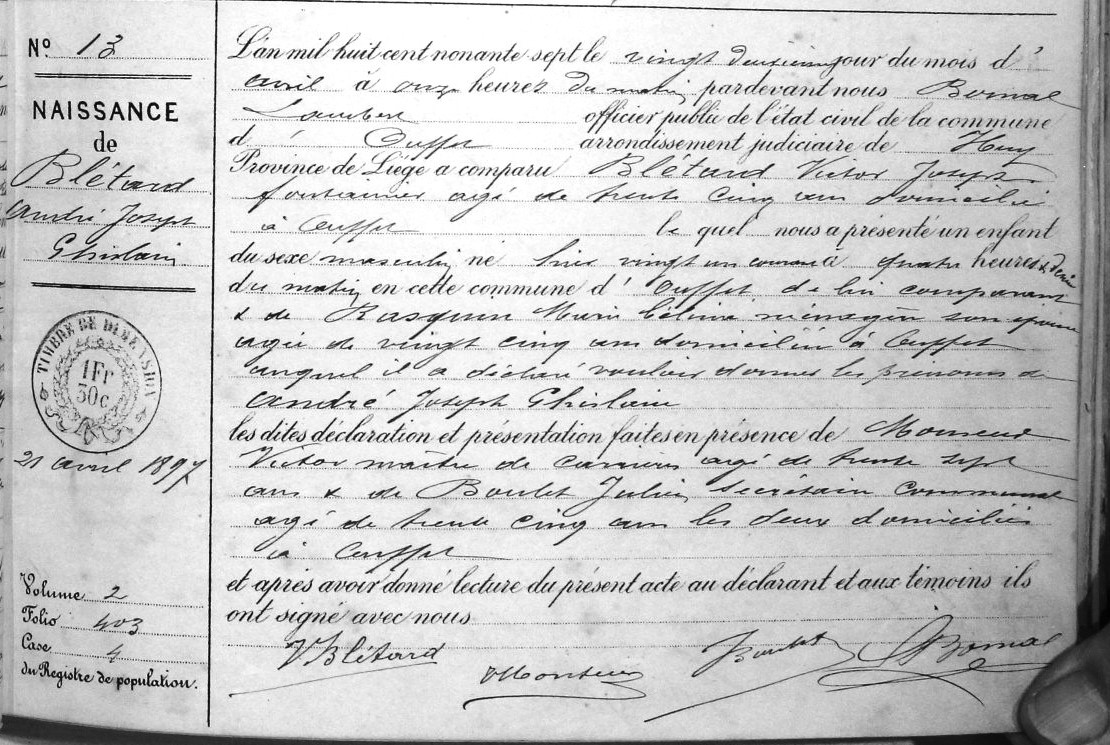 N° 13
NAISSANCE
de
Blétard
André Joseph
Ghislain
TIMBRE DE DIMENSION
1 Fr
50 c
21 avril 1897
Volume 2
Folio 403
Case 4
du Registre de population.
L'an mil huit cent nonante sept le vingt deuxième jour du mois d'
avril à onze heures du matin pardevant nous Bornal
Lambert officier public de l'état civil de la commune
d' Ouffet arrondissement judiciaire de Huy
Province de Liége a comparu Blétard Victor Joseph
fontainier agé de trente cinq ans domicilié
à Ouffet le quel nous a présenté un enfant
du sexe masculin né hier vingt un courant à quatre heures & demie
du matin en cette commune d'Ouffet de lui comparant
& de Rasquin Marie Céline ménagère son épouse
agée de vingt cinq ans domiciliée à Ouffet
auquel il a déclaré vouloir donner les prénoms de
André Joseph Ghislain
les dites déclaration et présentation faites en présence de
Victor maître de carrières agé de trente sept
ans & de Boulet Julien secrétaire communal
agé de trente cinq ans les deux domiciliés
à Ouffet
et après avoir donné lecture du présent acte au déclarant et aux témoins ils
ont signé avec nous
V Blétard
Boulet
Bornal